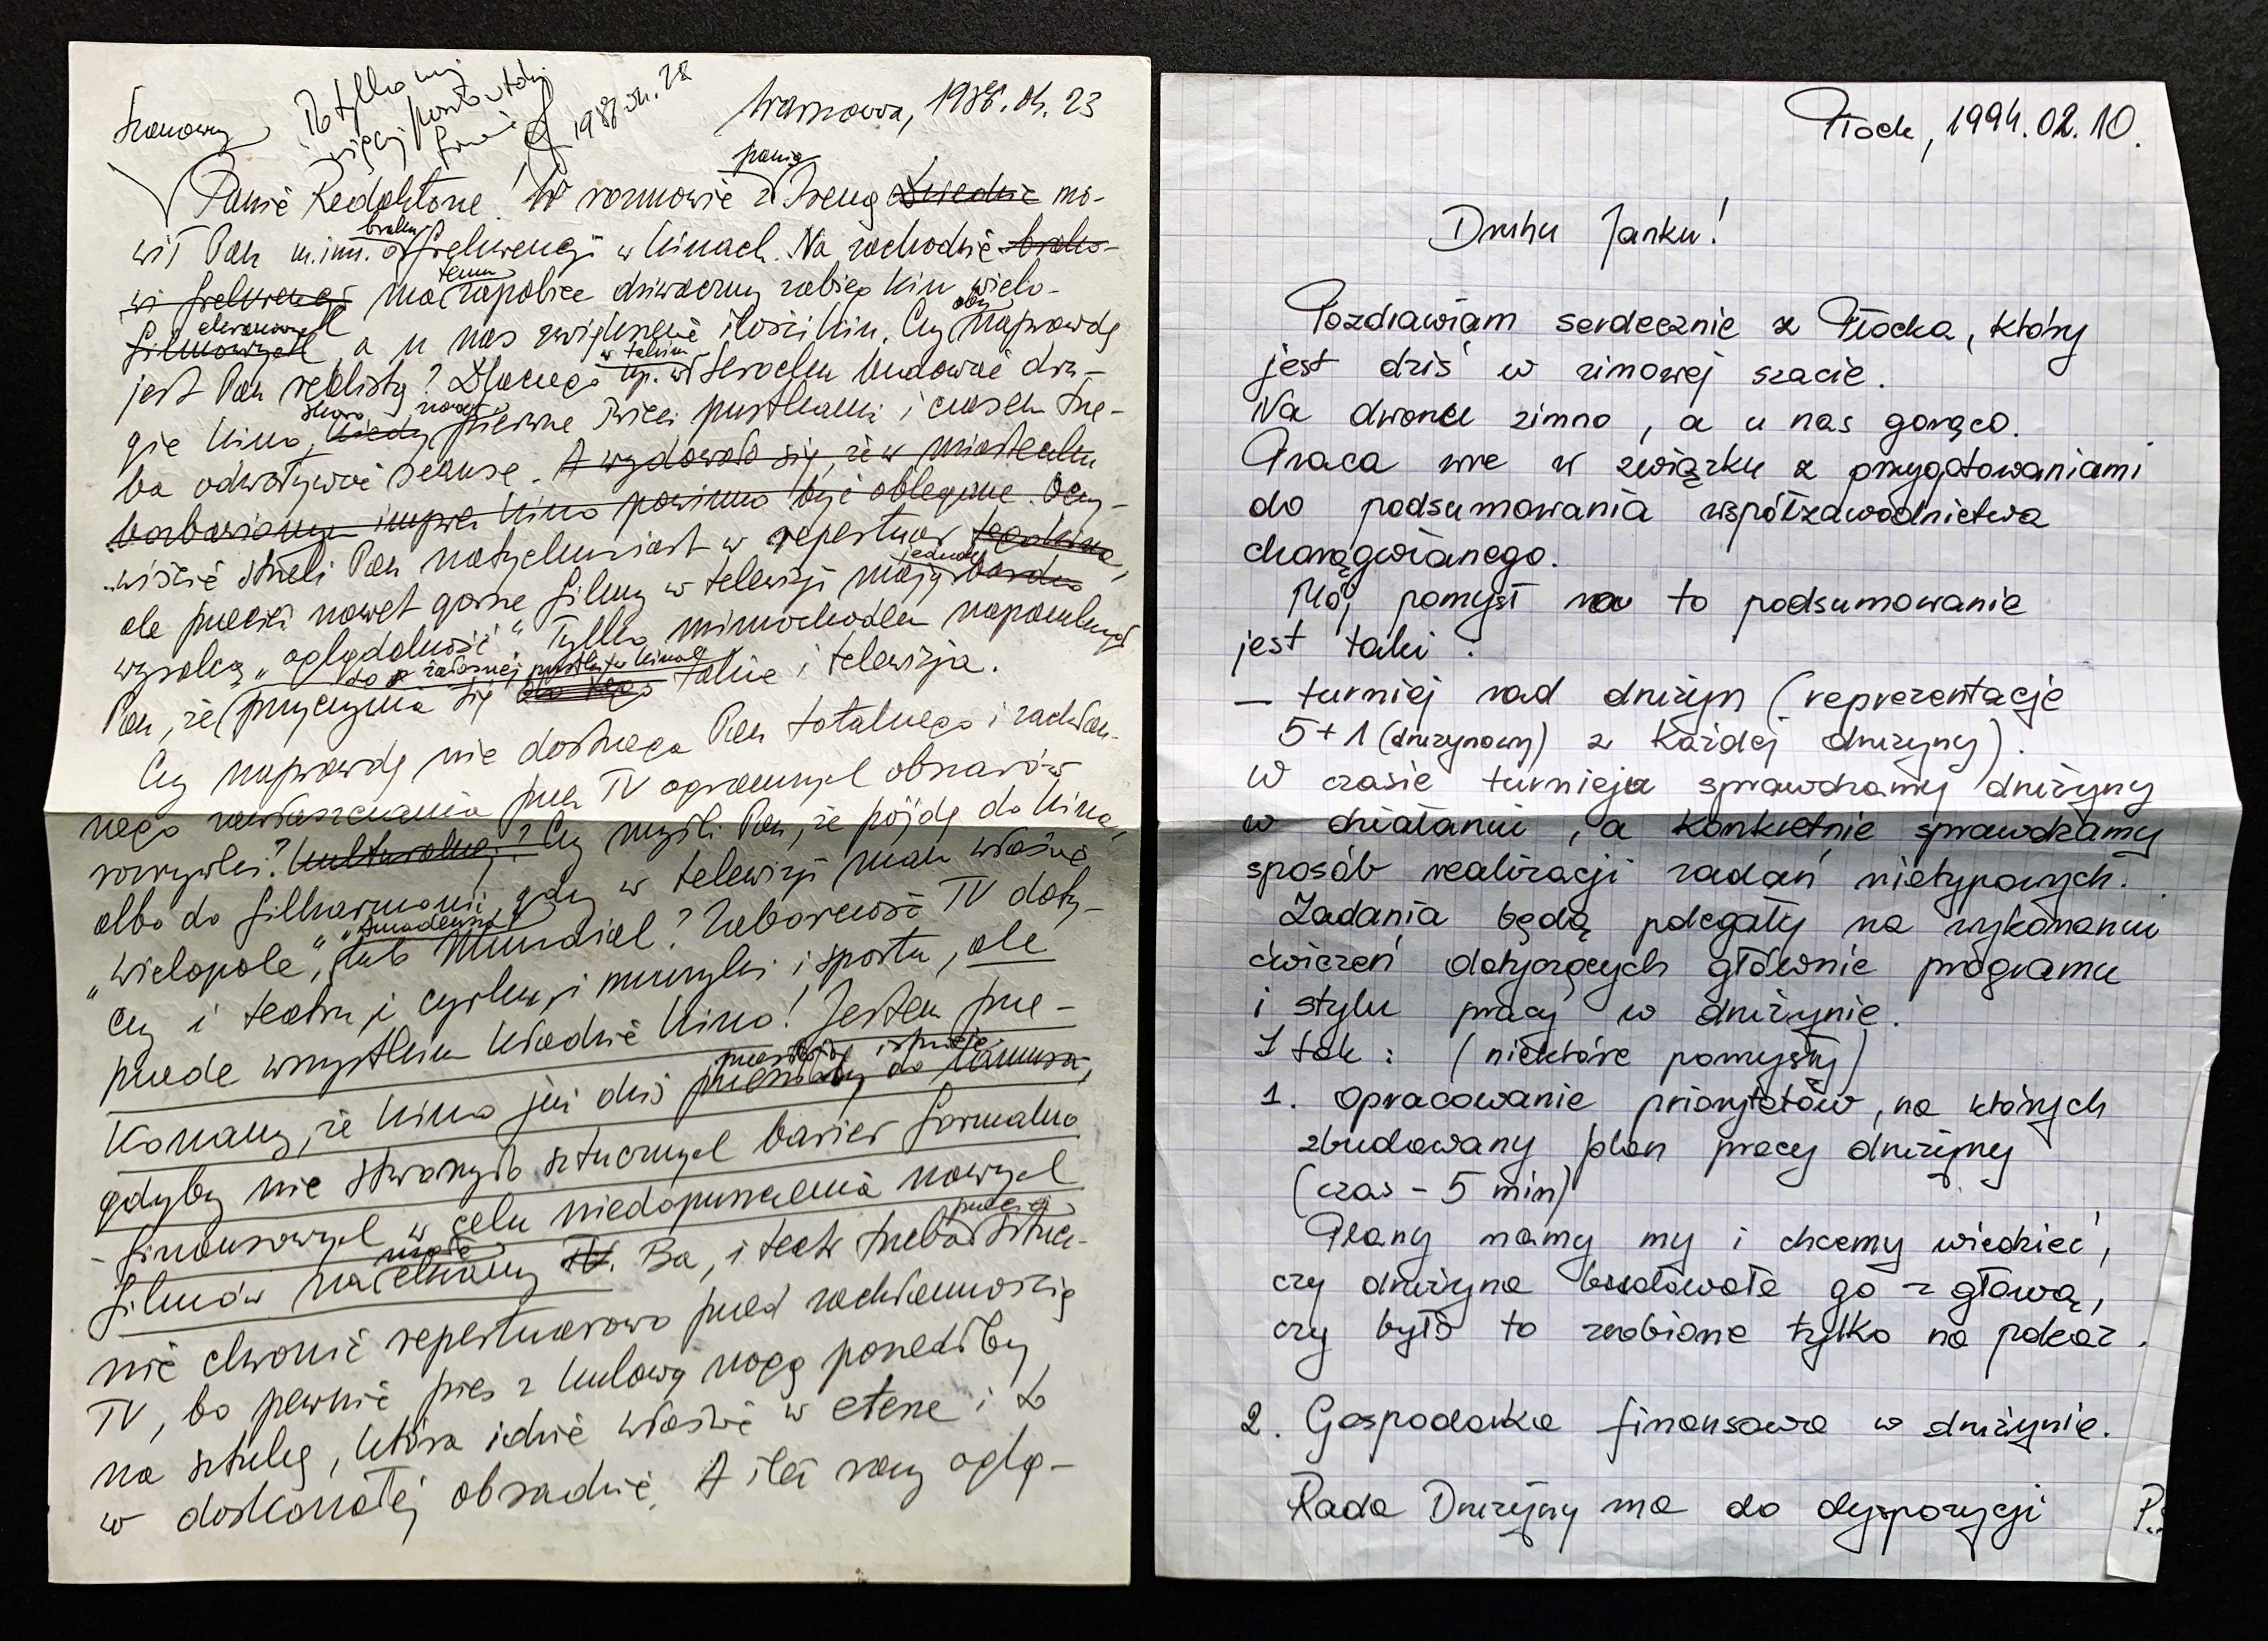 Szanowny
Warszawa, 1986.04.23
Panie Redaktorze! W rozmowie z panią Ireną mó-
wił Pan m.inn. o braku frekwencji w kinach. Na zachodzie brako-
wi frekwencji ma temu zapobiec dziwaczny zabieg kin wielo-
filmowych ekranowych, a u nas zwiększenie ilości kin. Czy aby naprawdę
jest Pan realistą? Dlaczego np. w takim Sierocku budować dru-
gie kino, kiedy skoro nawet pierwsze świeci pustkami i czasem trze-
ba odwoływać seanse. A wydawało się, że w miasteczku
pozbawionym imprez kino powinno być oblegane. Oczy-
wiście strzeli Pan natychmiast w repertuar tego kina,
ale przecież nawet gorsze filmy w telewizji mają jednak bardzo
wysoką „oglądalność". Tylko mimochodem napomknął
Pan, że przyczynia się do żałosnej pustki w kinach do tego także i telewizja.
Czy naprawdę nie dostrzega Pan totalnego i zachłan-
nego zawłaszczania przez TV ogromnych obszarów
rozrywki? kulturalnej? Czy myśli Pan, że pójdę do kina,
albo do filharmonii, gdy w telewizji mam właśnie
„Wielopole", „Amadeusza" lub Mundial? Zaborczość TV doty-
czy i teatru i cyrku, i muzyki i sportu, ale
przede wszystkim kładzie kino! Jestem prze-
konany, że kino już dziś przeszłoby do lamusa,
gdyby nie stworzyło sztucznych barier formalno
-finansowych w celu niedopuszczenia nowych
filmów na małe ekrany TV. Ba, i teatr trzeba przecież sztucz-
nie chronić repertuarowo przed zachłannością
TV, bo pewnie pies z kulawą nogą poszedłby
na sztukę, która idzie właśnie w eterze i to
w doskonałej obsadzie. A ileż razy oglą-
Płock, 1994.02.10.
Druhu Janku!
Pozdrawiam serdecznie z Płocka, który
jest dziś w zimowej szacie.
Na dworze zimno, a u nas gorąco.
Praca wre w związku z przygotowaniami
do podsumowania współzawodnictwa
chorągwianego.
Mój pomysł na to podsumowanie
jest taki:
– turniej rad drużyn (reprezentacje
5+1 (drużynowy) z każdej drużyny).
W czasie turnieju sprawdzamy drużyny
w działaniu, a konkretnie sprawdzamy
sposób realizacji zadań nietypowych.
Zadania będą polegały na wykonaniu
ćwiczeń dotyczących głównie programu
i stylu pracy w drużynie.
I tak: (niektóre pomysły)
1. Opracowanie priorytetów, na których
zbudowany plan pracy drużyny
(czas – 5 min)
Plany mamy my i chcemy wiedzieć,
czy drużyna budowała go z głową,
czy było to zrobione tylko na pokaz.
2. Gospodarka finansowa w drużynie.
Rada Drużyny ma do dyspozycji